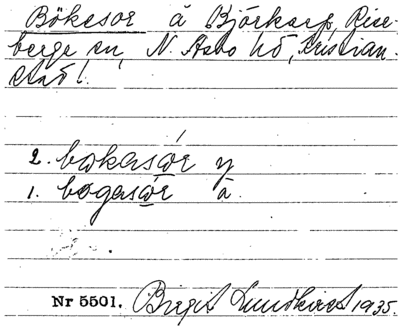 Bökesor å Björkarp, Rise-
berga sn, N. Åsbo hd, Kristian-
stad l.
2. bøkasór y
1. bøgasór ä.
Nr 5501. Birgit Lundkvist 1935.